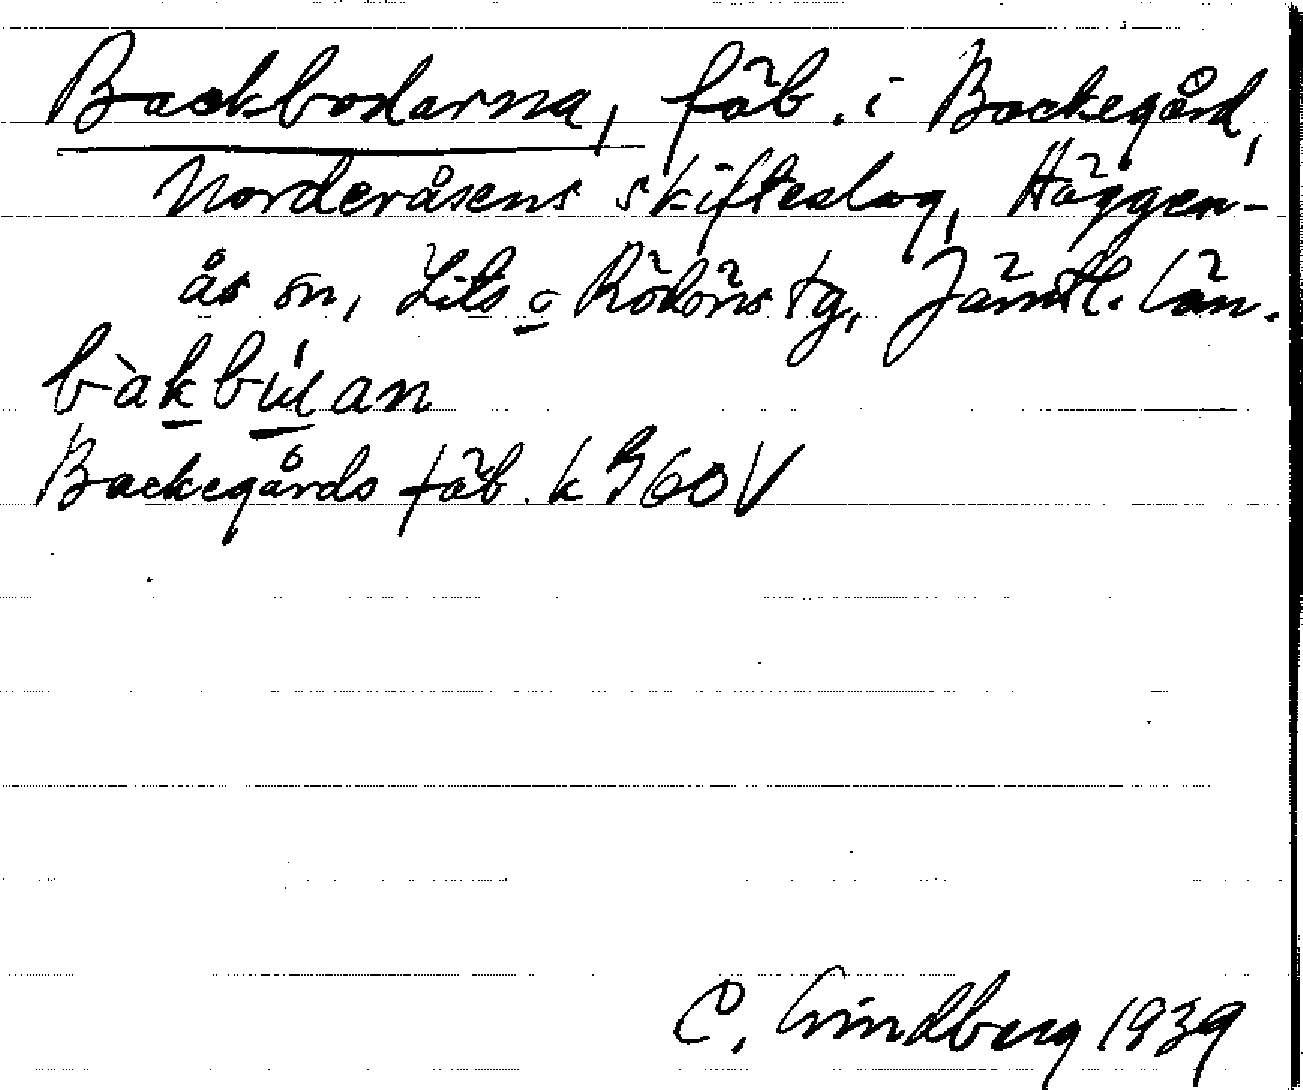 Backbodarna, fäb. i Backegård,
Norderåsens skifteslag, Häggen-
ås sn, Lits o Rödöns tg, Jämtl. län.
Backegårds fäb. k 960V
C. Lindberg 1939